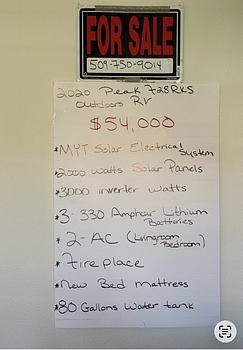 FOR SALE
509-750-9014
2020 Peak 728RKS
outdoors RV
$54,000
*MYT Solar Electrical
System
*2000 watts Solar Panels
*3000 inverter watts
*3-330 Amphour Lithium
Batteries
*2-AC (Livingroom
Bedroom)
*Fireplace
*New Bed mattress
*80 Gallons water tank